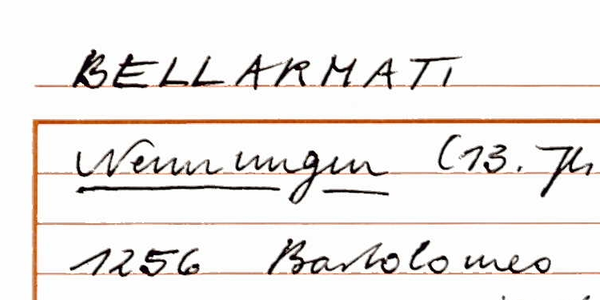 BELLARMATI
Nennungen (13. Jh
1256 Bartolomeo